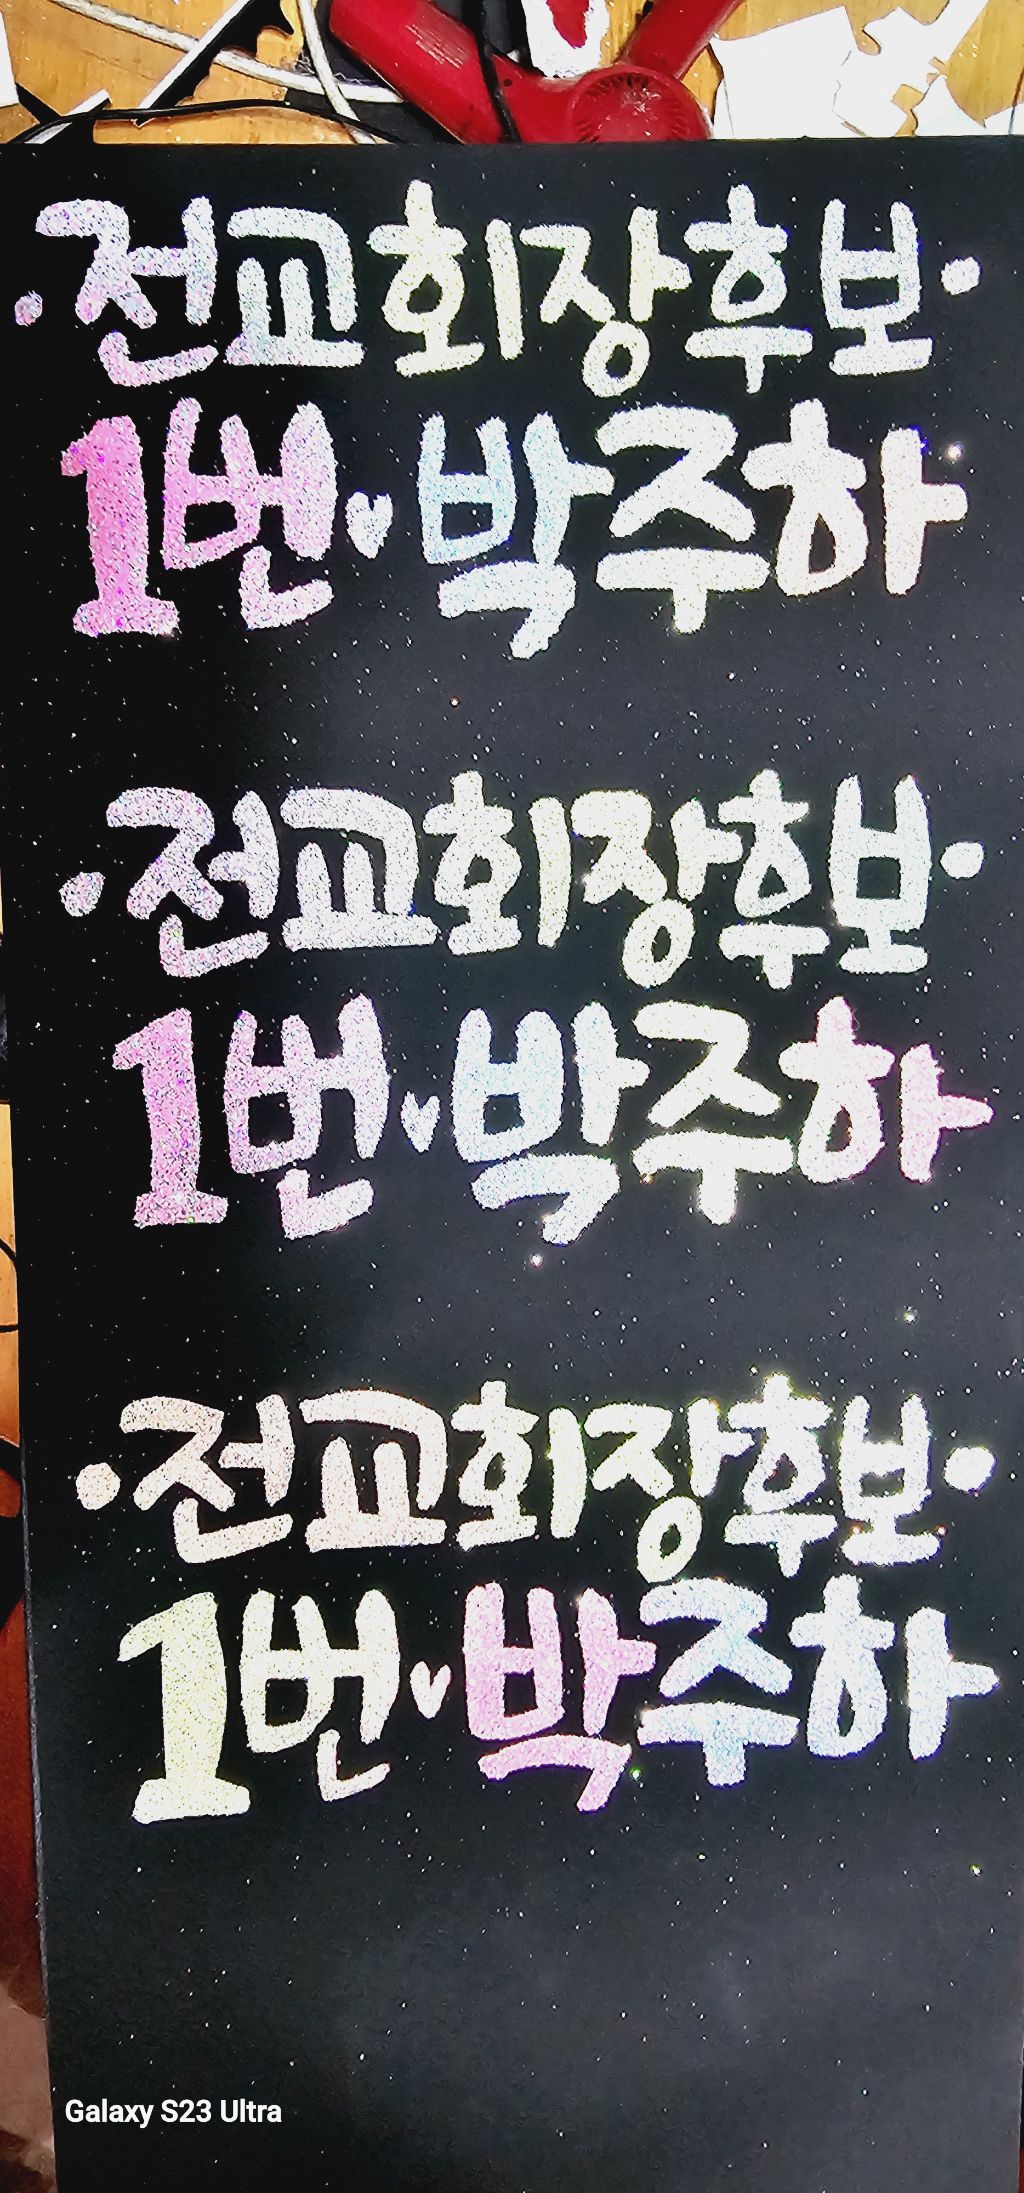 ·전교회장후보·
1번♥박주하
·전교회장후보·
1번♥박주하
·전교회장후보·
1번♥박주하
Galaxy S23 Ultra